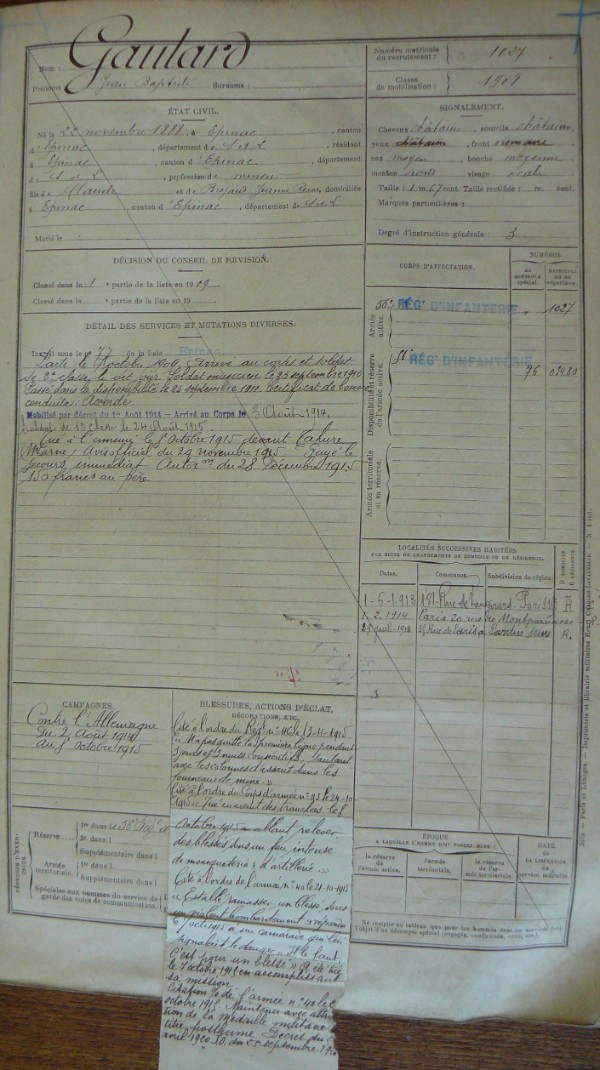 Nom : Gautard
Prénoms : Jean Baptiste Surnoms :
Numéro matricule
du recrutement : 1027
Classe
de mobilisation : 1908
ÉTAT CIVIL.
Né le 22 novembre 1888, à Epinac, canton
d'Epinac, département de S et L, résidant
à Epinac, canton d'Epinac, département
de S et L, profession de mineur
fils de Claude et de Jeanne, domiciliés
à Epinac, canton d'Epinac, département de S et L
Marié le
SIGNALEMENT.
Cheveux châtains, sourcils châtains,
yeux châtains, front ordinaire
nez moyen, bouche moyenne
menton rond, visage ovale
Taille : 1 m. 67 cent. Taille rectifiée : m. cent.
Marques particulières :
Degré d'instruction générale : 3
DÉCISION DU CONSEIL DE REVISION.
Classé dans la 1e partie de la liste en 1909
Classé dans la e partie de la liste en 19
CORPS D'AFFECTATION.
NUMÉROS
AU CONTRÔLE SPÉCIAL.
MATRICULE OU AU RÉPERTOIRE.
Armée active.
56e RÉG' D'INFANTERIE 1027
Disponibilité et réserve de l'armée active.
56e RÉG' D'INFANTERIE 76 03480
Armée territoriale et sa réserve.
DÉTAIL DES SERVICES ET MUTATIONS DIVERSES.
Inscrit sous le n° 77 de la liste Epinac
octobre 1909. Arrivé au corps et soldat
de 2e classe le dit jour. Soldat musicien le 25 septembre 1910
Passé dans la disponibilité le 24 septembre 1911. Certificat de bonne
conduite : Accordé.
Mobilisé par décret du 1er Août 1914 – Arrivé au Corps le 3 Août 1914.
Soldat de 1e classe le 24 Août 1915.
Tué à l'ennemi le 8 Octobre 1915 devant Tahure
(Marne) Avis officiel du 29 novembre 1915 Payé le
secours immédiat du 28 Décembre 1915
150 francs au père
LOCALITÉS SUCCESSIVES HABITÉES
PAR SUITE DE CHANGEMENTS DE DOMICILE OU DE RÉSIDENCE.
Dates. Communes. Subdivision de région. D. DOMICILE. R. RÉSIDENCE.
1-6-1913 181 Rue de Paris R
1.2.1914 Paris 20 rue de Montparnasse
1914 25 Rue de Paris à R.
CAMPAGNES.
Contre l'Allemagne
Du 2 Août 1914
au 8 Octobre 1915
BLESSURES, ACTIONS D'ÉCLAT,
DÉCORATIONS, ETC.
Cité à l'ordre du Rég' n° 1915
« N'a pas quitté la première ligne pendant
3 jours et 3 nuits consécutifs, sautant
avec les colonnes d'assaut dans les
fourneaux de mine. »
Cité à l'ordre du Corps d'armée n° 93 le 24-10
1915 « tué en avant des tranchées le 8
octobre 1915 en allant relever
des blessés sous un feu intense
de mousqueterie & d'artillerie »
Cité à l'ordre de l'armée n° 40 le 28-10-1915
« Est allé ramasser un blessé sous
un violent bombardement, a répondu
le 7 oct 1915 à un camarade qui lui
signalait le danger « Il le faut
C'est pour un blessé » A été tué
le 7 octobre 1915 en accomplissant
sa mission.
Citation de l'armée n° 40 le
octobre 1915. Maintenue avec attribu-
tion de la médaille militaire
titre posthume. Decret du
avril 1920 J.O. du 25 septembre 1920
PÉRIODES D'EXERCICES
Réserve 1re dans le 56e Rég'
2e dans l
Supplémentaire dans l
Armée territoriale 1re dans l
Supplémentaire dans l
Spéciales aux hommes du service de
garde des voies de communication.
ÉPOQUE
À LAQUELLE L'HOMME DOIT PASSER DANS :
la réserve de l'armée active.
l'armée territoriale.
la réserve de l'armée territoriale.
DATE DE LA LIBÉRATION DU SERVICE MILITAIRE.
Paris et Limoges. — Imprimerie et librairie militaires Henri Charles-Lavauzelle.